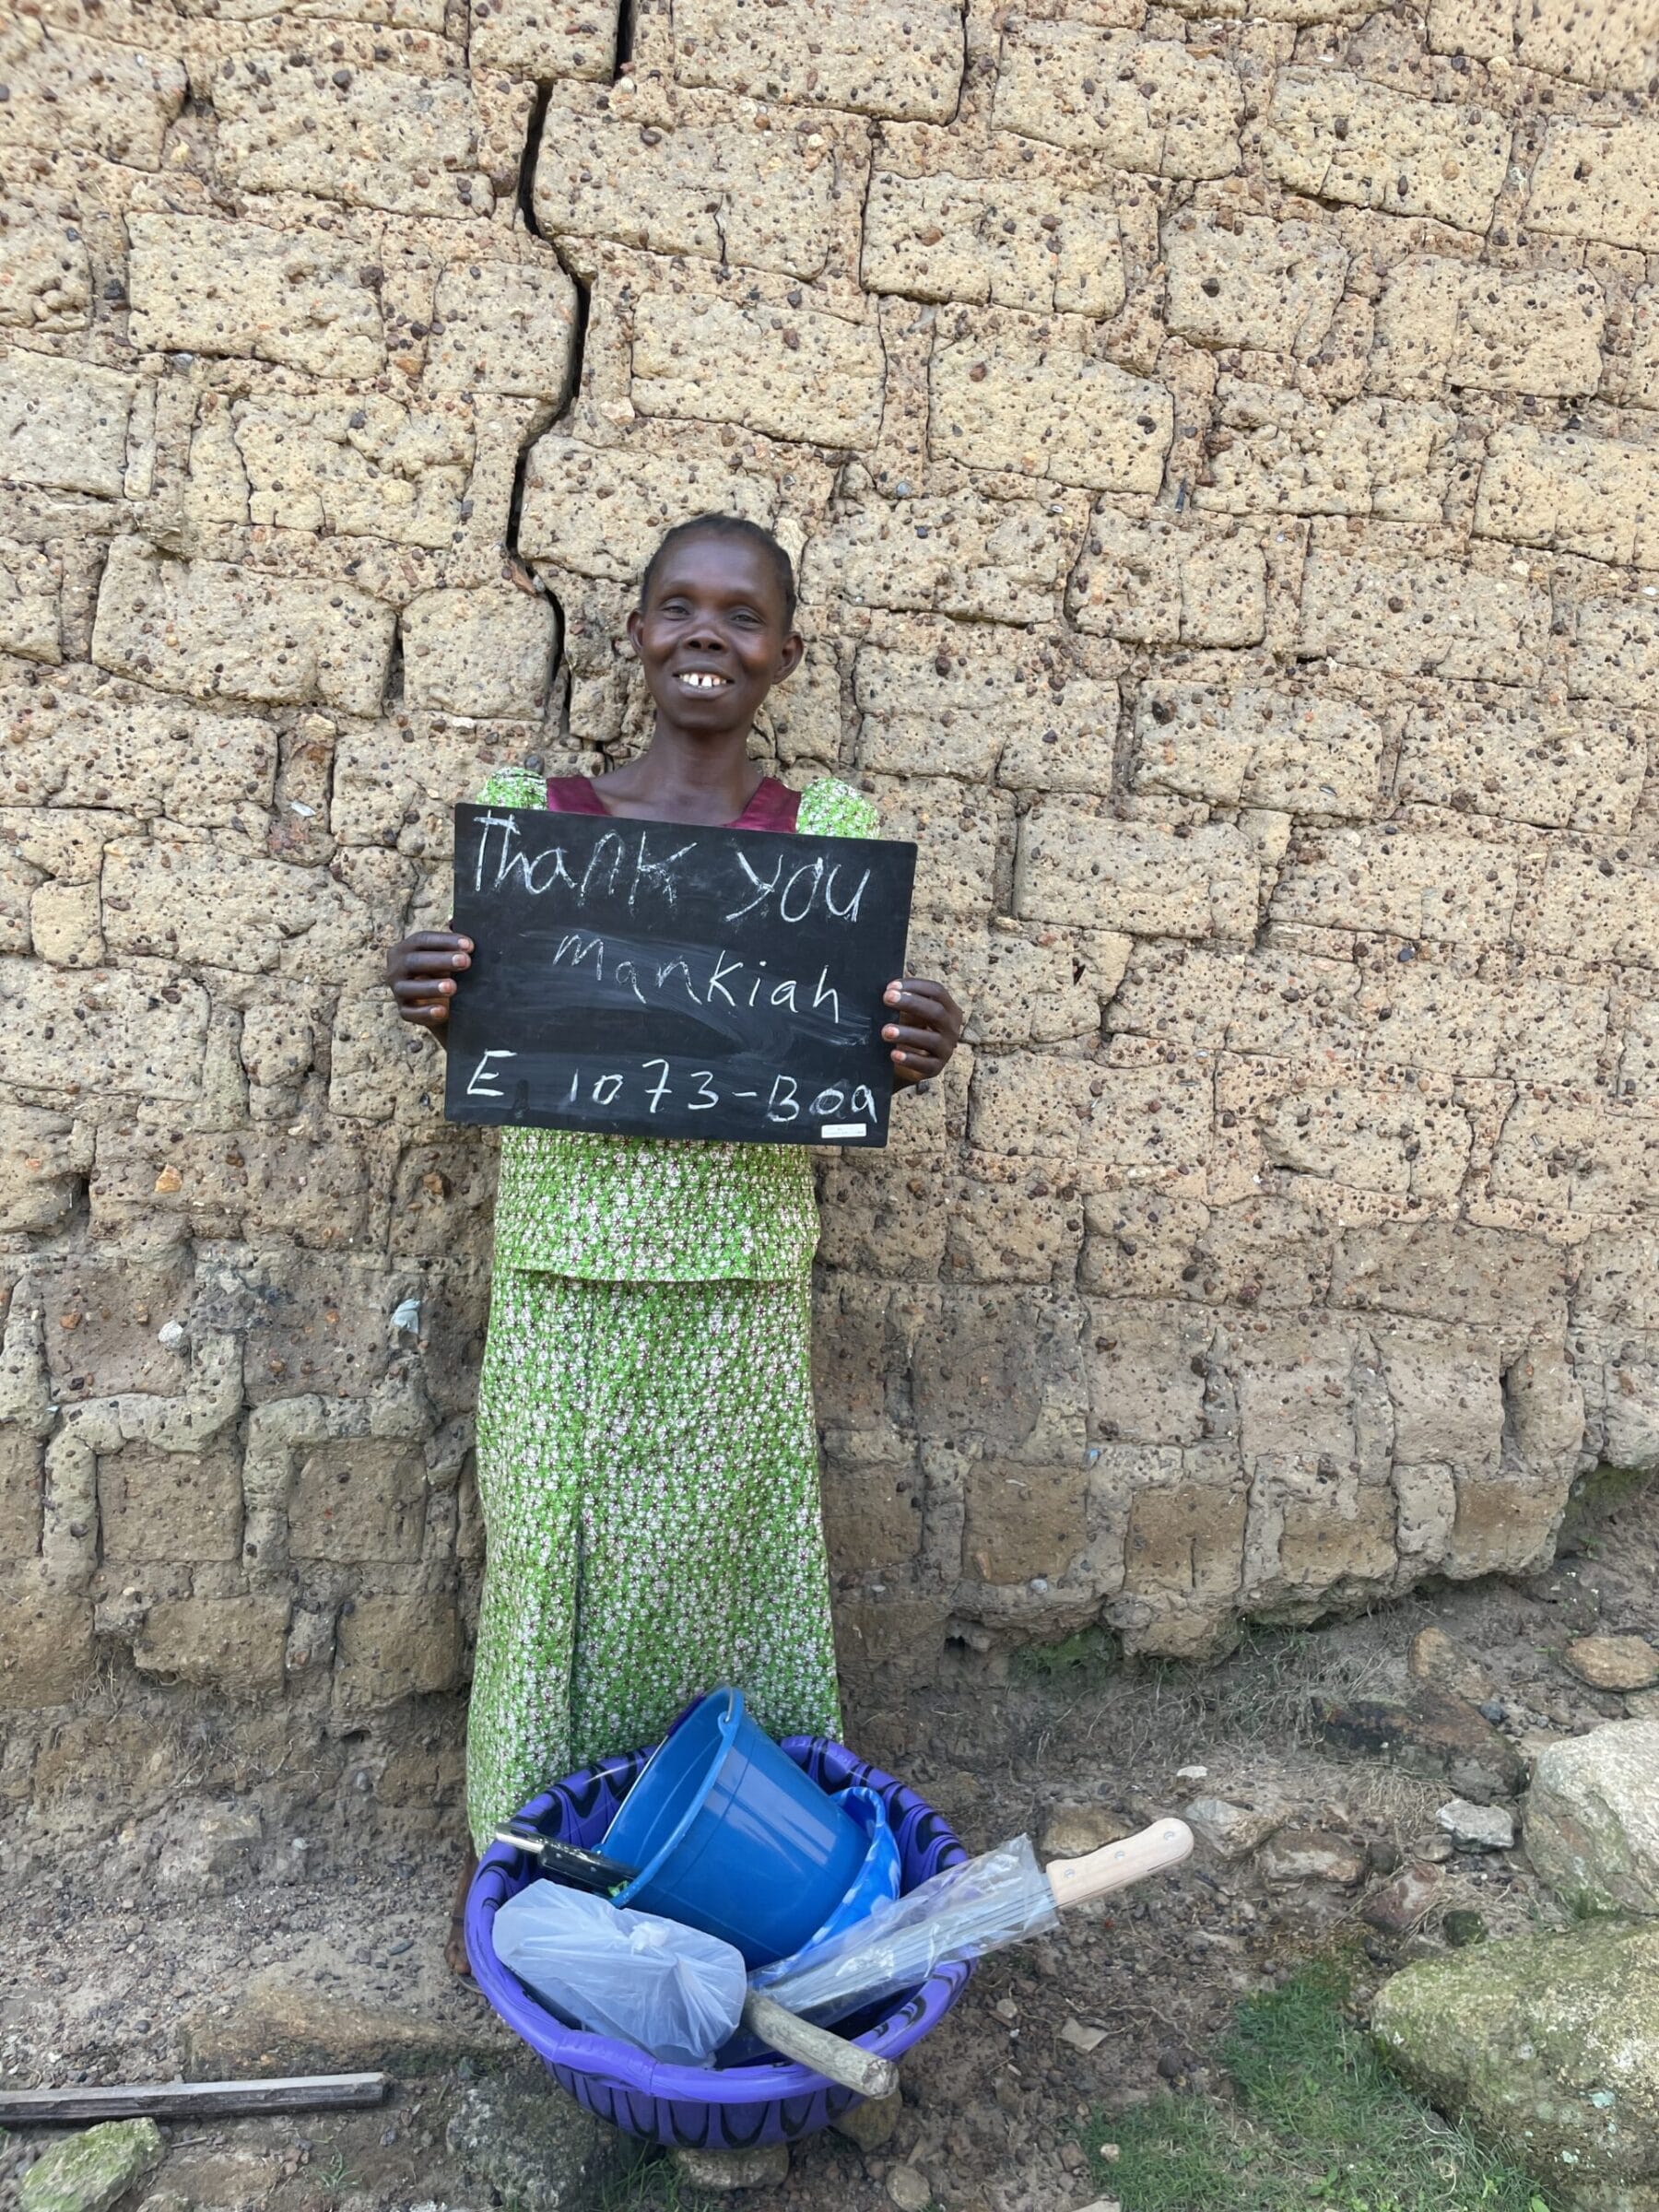 Thank you
Mankiah
E 1073-Boa